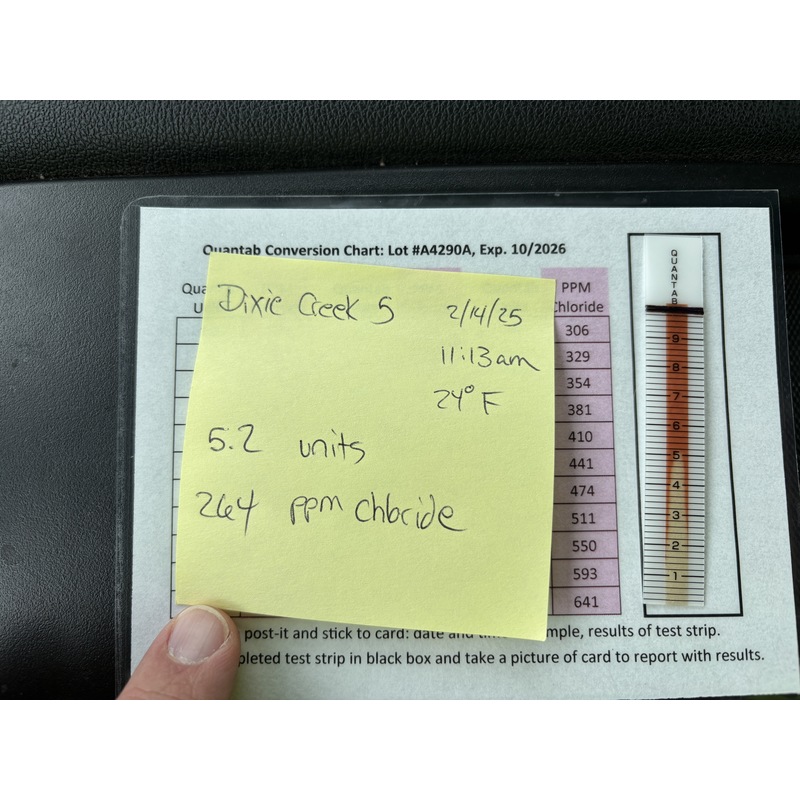 Quantab Conversion Chart: Lot #A4290A, Exp. 10/2026
Dixie Creek 5 2/14/25
11:13am
24° F
5.2 units
264 ppm chloride
PPM
Chloride
306
329
354
381
410
441
474
511
550
593
641
QUANTAB
9
8
7
6
5
4
3
2
1
post-it and stick to card: date and results of test strip.
test strip in black box and take a picture of card to report with results.